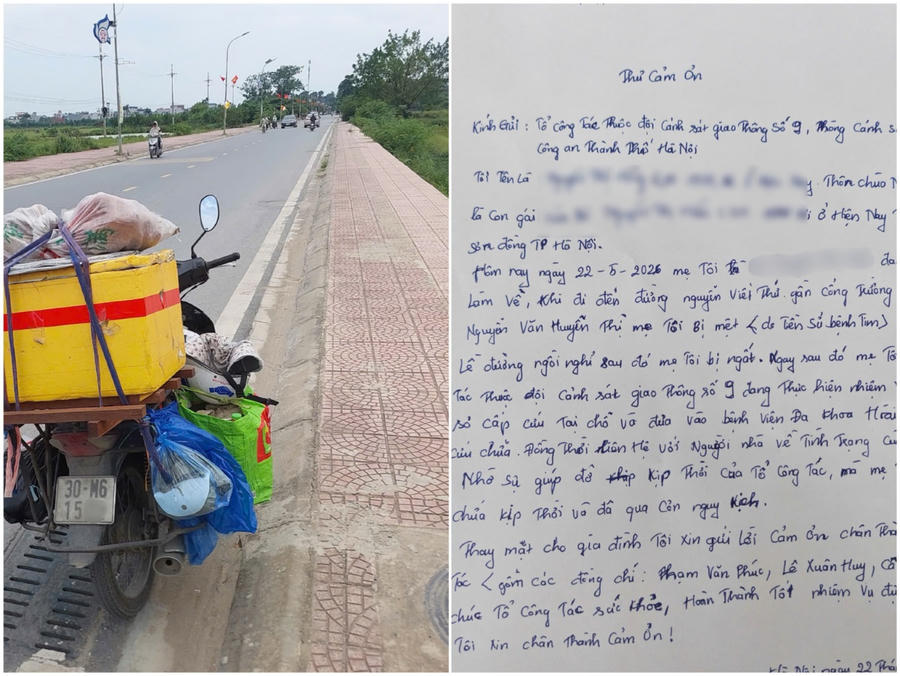 30-M6
15
Thư Cảm Ơn
Kính Gửi : Tổ công Tác Thuộc đội Cảnh sát giao Thông Số 9, Phòng Cảnh s
Công an Thành Phố Hà Nội
Tôi Tên Là
Thôn chùa N
là Con gái
ở Hiện Nay
sơn đồng TP Hà Nội.
Hôm nay ngày 22-5-2026 mẹ Tôi là
đa
Làm Về, Khi đi đến đường nguyễn Viết Thứ gần Cổng Trường
Nguyễn Văn Huyễn Thì mẹ Tôi Bị mệt < do Tiền Sử bệnh Tim>
Lề đường ngồi nghỉ sau đó mẹ Tôi bị ngất. Ngay sau đó mẹ Tô
Tác Thuộc đội Cảnh sát giao Thông số 9 đang Thực hiện nhiệm
sơ cấp cứu Tại chỗ và đưa vào bệnh Viện Đa Khoa Hoài
cứu chữa. Đồng Thời Liên Hệ với Người nhà về Tình Trạng
Nhờ sự giúp đỡ kịp Thời Của Tổ Công Tác, mà mẹ
chữa kịp Thời và đã qua Cơn nguy Kịch.
Thay mặt cho gia đình Tôi Xin gửi Lời Cảm Ơn chân Thà
Tác < gồm các đồng chí : Phạm Văn Phúc, Lê Xuân Huy,
chúc Tổ Công Tác sức khỏe, Hoàn Thành Tốt nhiệm Vụ đư
Tôi Xin chân Thành Cảm Ơn !
Hà Nội ngày 22 Thá